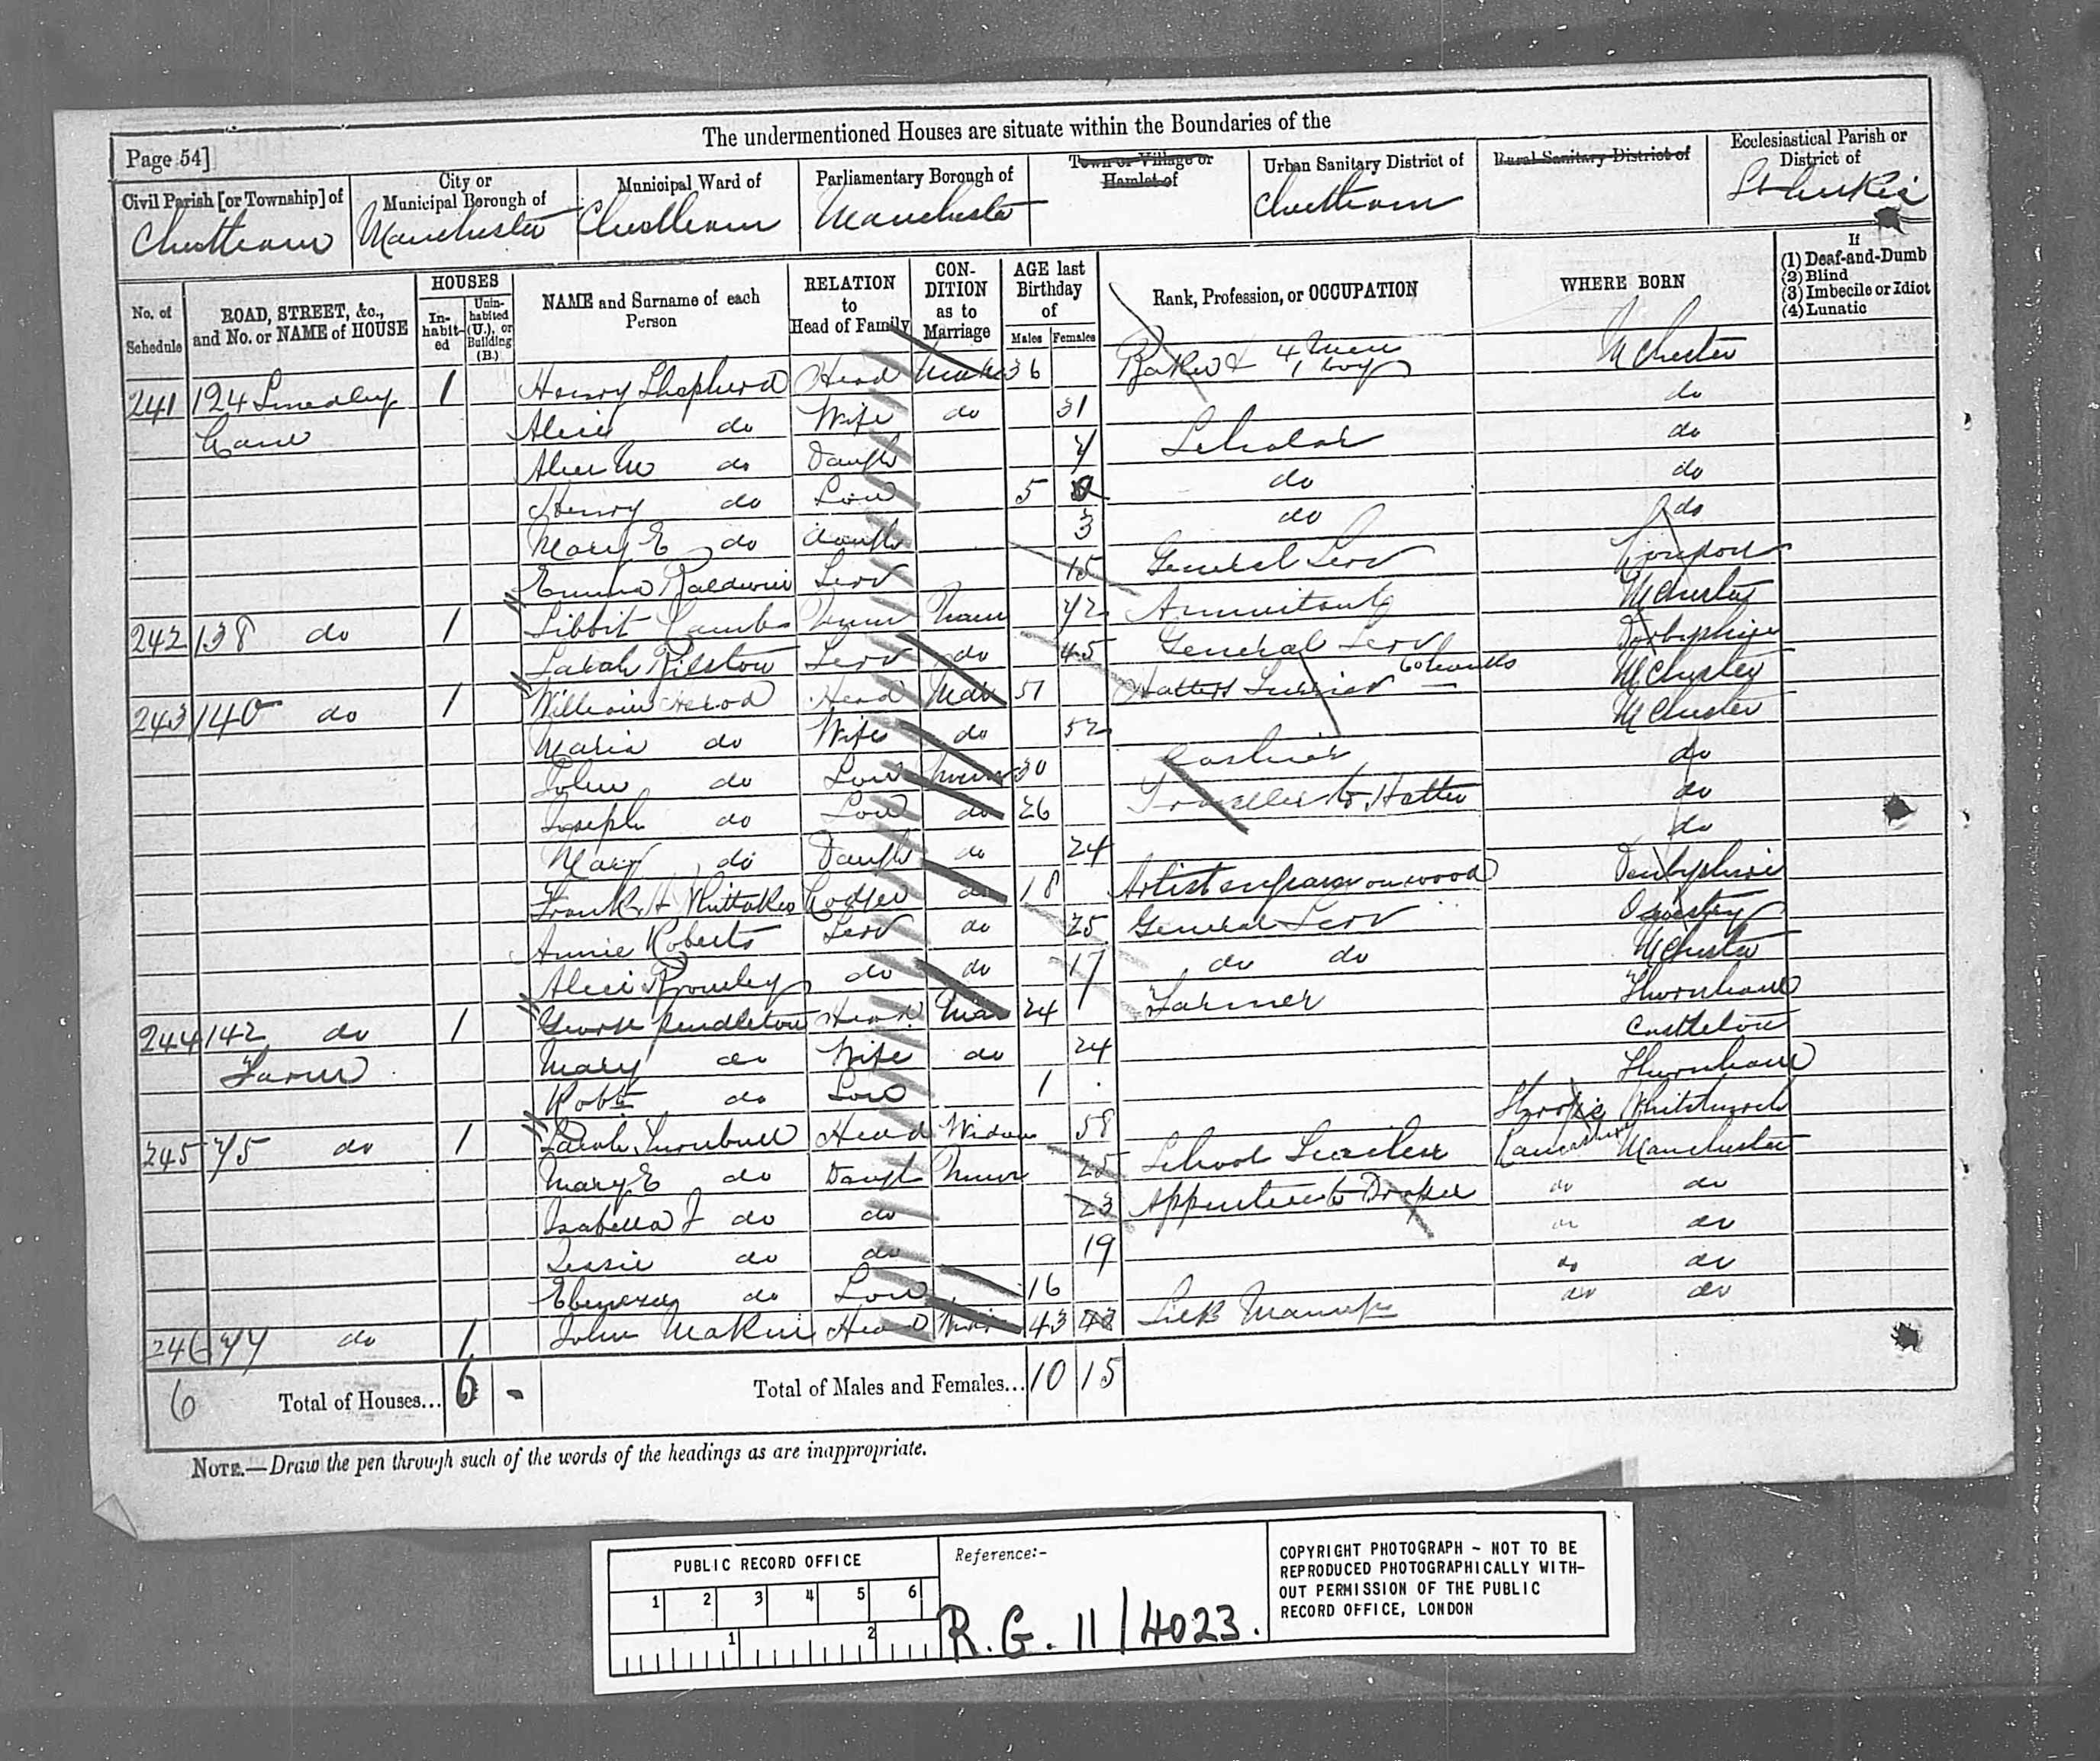 The undermentioned Houses are situate within the Boundaries of the
Page 54]
Civil Parish [or Township] of
Cheetham
City or Municipal Borough of
Manchester
Municipal Ward of
Cheetham
Parliamentary Borough of
Manchester
Town or Village or Hamlet of
Urban Sanitary District of
Cheetham
Rural Sanitary District of
Ecclesiastical Parish or District of
St Lukes
No. of Schedule
ROAD, STREET, &c., and No. or NAME of HOUSE
HOUSES
In-habit-ed
Unin-habited (U.), or Building (B.)
NAME and Surname of each Person
RELATION to Head of Family
CON-DITION as to Marriage
AGE last Birthday of
Males Females
Rank, Profession, or OCCUPATION
WHERE BORN
If
(1) Deaf-and-Dumb
(2) Blind
(3) Imbecile or Idiot
(4) Lunatic
241 124 Smedley 1 Henry Shepherd Head Mar 36 Baker 4 Men 1 boy MChester
Lane Alice do Wife do 31 do
Alice M do Daugh 7 Scholar do
Henry do Son 5 do do
Mary E do daugh 3 do do
Emma Baldwin Serv 15 General Serv London
242 138 do 1 Sibbit Unm 72 Annuitant MChester
Sarah Serv do 45 General Serv Derbyshire
243 140 do 1 William Herod Head Mar 51 Hatters 60 hands MChester
Maria do Wife do 52 MChester
John do Son Unm 30 Cashier do
Joseph do Son do 26 Traveller to Hatter do
Mary do Daugh do 24 do
Frank H Whittaker Lodger do 18 Artist engraver on wood Derbyshire
Annie Roberts Serv do 25 General Serv Oswestry
Alice Bromley do do 17 do do MChester
244 142 do 1 George Pendleton Head Mar 24 Farmer Thornham
Farm Mary do Wife do 24 Castleton
Robt do Son 1 Thornham
245 75 do 1 Sarah Turnbull Head Widow 58 Shropis Whitchurch
Mary E do Daugh Unm 25 School Teacher Lancashire Manchester
Isabella J do do 23 Apprentice to Draper do do
Jessie do do 19 do do
Ebenezer do Son 16 do do
246 77 do 1 John Makin Head 43 Silk Manuf do do
6 Total of Houses... 6 - Total of Males and Females... 10 15
NOTE.—Draw the pen through such of the words of the headings as are inappropriate.
PUBLIC RECORD OFFICE
1 2 3 4 5 6
1 2
Reference:-
R.G. 11/4023.
COPYRIGHT PHOTOGRAPH - NOT TO BE
REPRODUCED PHOTOGRAPHICALLY WITH-
OUT PERMISSION OF THE PUBLIC
RECORD OFFICE, LONDON